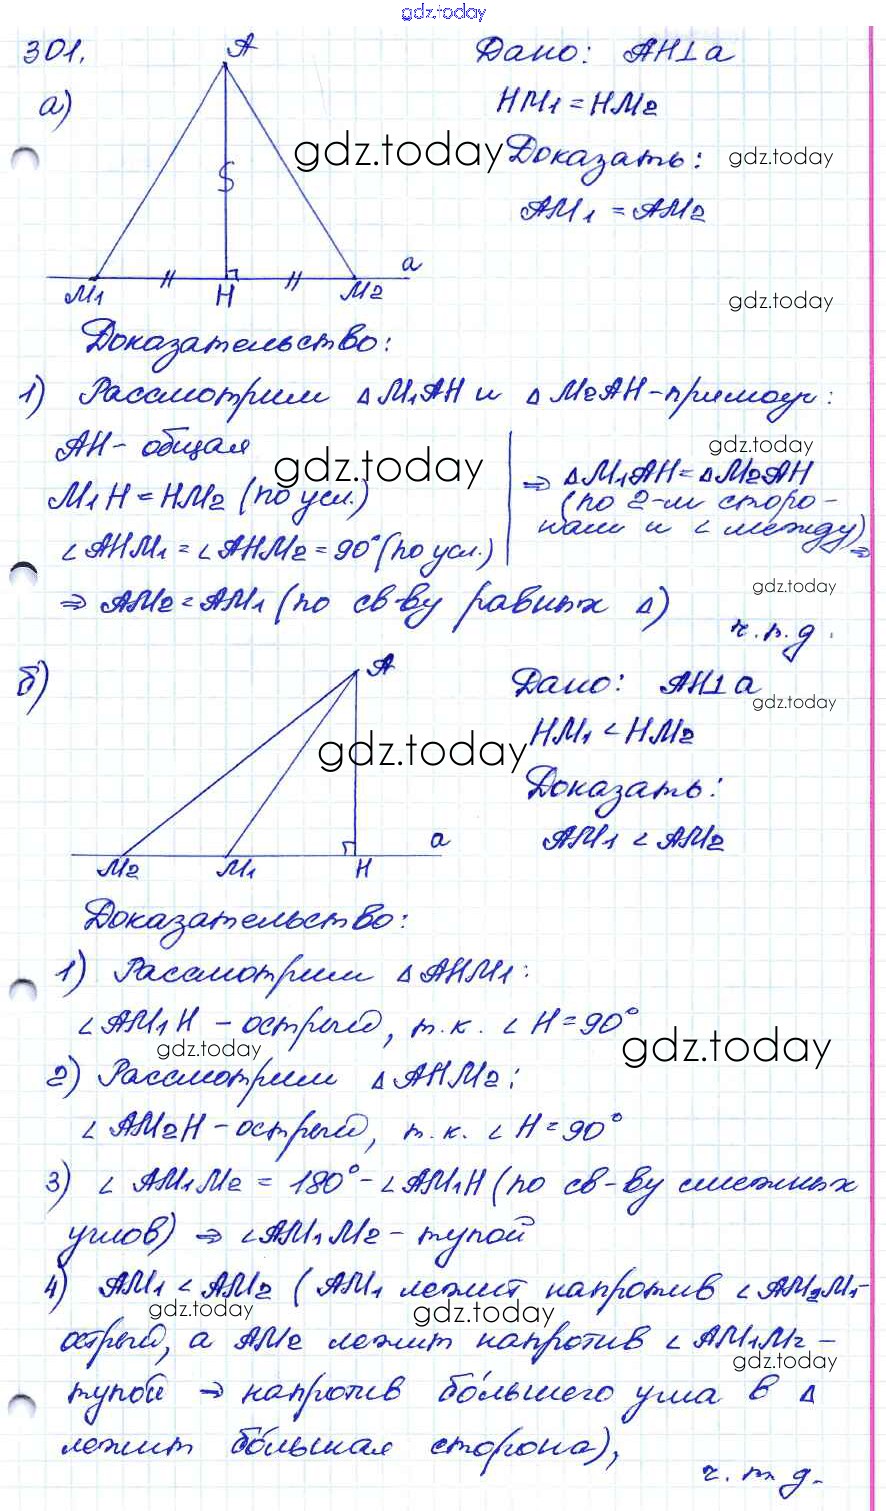 gdz.today
301.
A
Дано: AH⊥a
а)
HM1 = HM2
gdz.today
Доказать:
gdz.today
AM1 = AM2
a
M1
H
M2
gdz.today
Доказательство:
1) Рассмотрим △M1AH и △M2AH - прямоуг:
AH - общая
gdz.today
gdz.today
M1H = HM2 (по усл.)
∠AHM1 = ∠AHM2 = 90° (по усл.)
⇒ △M1AH = △M2AH
(по 2-м сторо-
нам и ∠ между) ⇒
gdz.today
⇒ AM2 = AM1 (по св-ву равных △)
ч.т.д.
б)
A
Дано: AH⊥a
gdz.today
HM1 < HM2
gdz.today
Доказать:
AM1 < AM2
a
M2
M1
H
Доказательство:
1) Рассмотрим △AHM1:
∠AM1H - острый, т.к. ∠H = 90°
gdz.today
gdz.today
2) Рассмотрим △AHM2:
∠AM2H - острый, т.к. ∠H = 90°
3) ∠AM1M2 = 180° - ∠AM1H (по св-ву смежных
углов) ⇒ ∠AM1M2 - тупой
4) AM1 < AM2 (AM1 лежит напротив ∠AM2M1-
gdz.today
gdz.today
острый, а AM2 лежит напротив ∠AM1M2 -
gdz.today
тупой ⇒ напротив бо́льшего угла в △
лежит бо́льшая сторона),
ч.т.д.